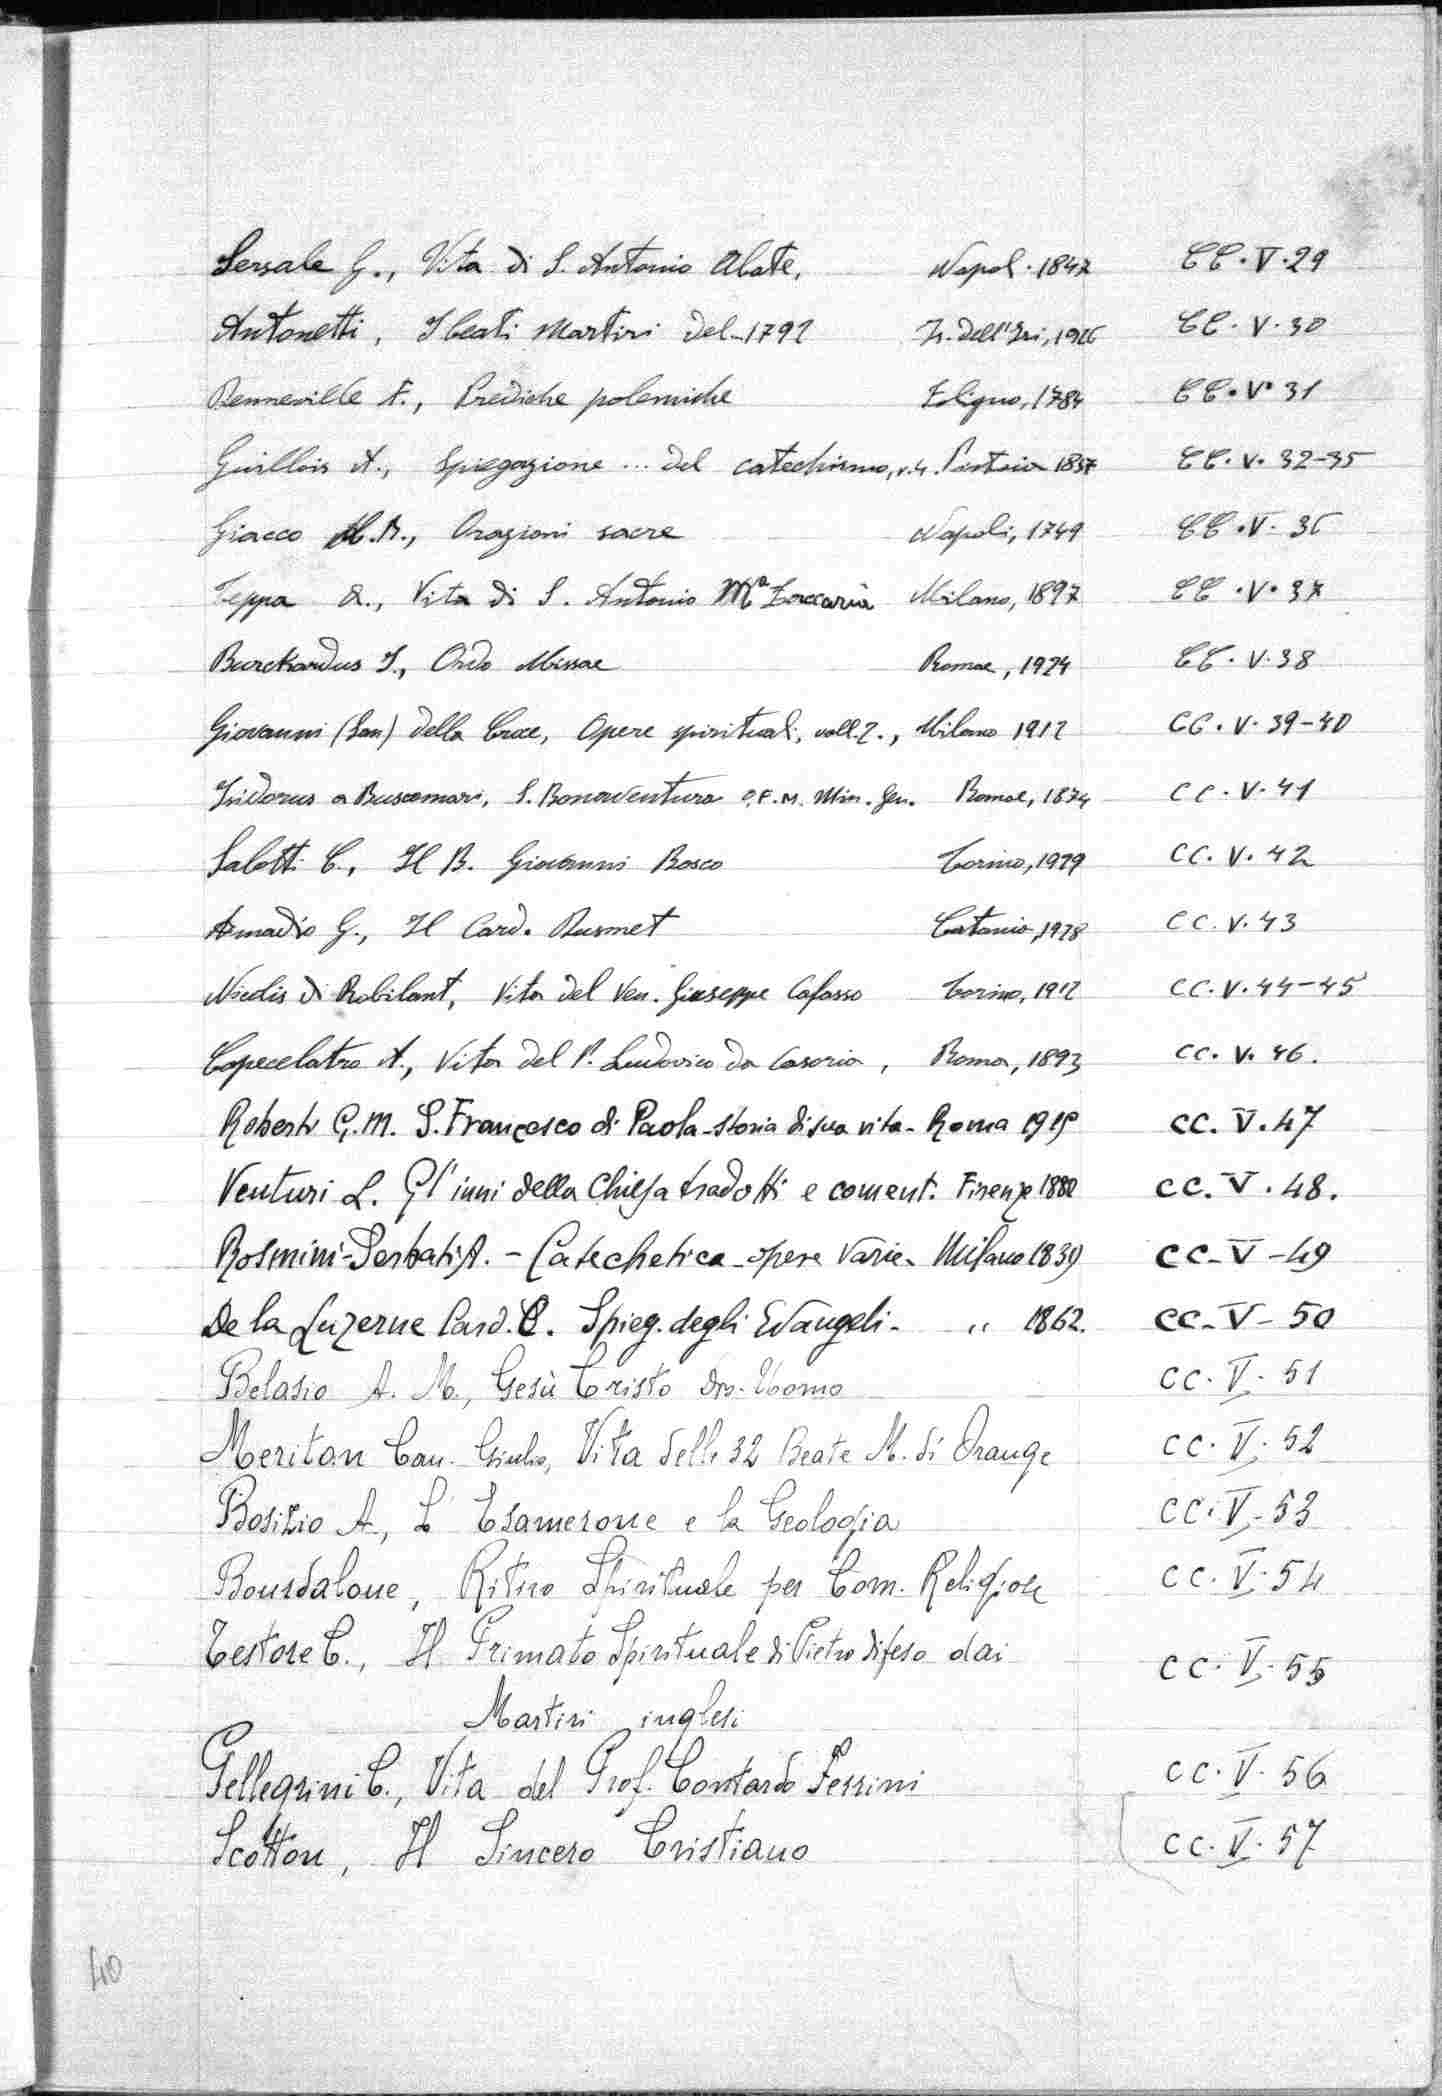 Sersale G., Vita di S. Antonio Abate, Napol. 1847 CC. V. 29
Antonetti, I beati Martiri del 1792 1926 CC. V. 30
Renneville A., Prediche polemiche Foligno, 1784 CC. V. 31
Guillois A., Spiegazione ... del catechismo, v. 4. 1857 CC. V. 32-35
Giacco M.B., Orazioni sacre Napoli, 1749 CC. V. 36
Teppa A., Vita di S. Antonio Mª Zaccaria Milano, 1897 CC. V. 37
Burckardus J., Ordo Missae Romae, 1924 CC. V. 38
Giovanni (San) della Croce, Opere spirituali, voll. 2., Milano 1912 CC. V. 39-40
Isidorus a Buscomari, S. Bonaventura O.F.M. Min. Gen. Romae, 1874 CC. V. 41
Salotti C., Il B. Giovanni Bosco Torino, 1929 CC. V. 42
Amadio G., Il Card. Dusmet Catania, 1928 CC. V. 43
Nicolis di Robilant, Vita del Ven. Giuseppe Cafasso Torino, 1912 CC. V. 44-45
Capecelatro A., Vita del P. Ludovico da Casoria, Roma, 1893 CC. V. 46.
Roberti G.M. S. Francesco di Paola - storia di sua vita - Roma 1915 CC. V. 47
Venturi L. Gl'inni della Chiesa tradotti e coment. Firenze 1880 CC. V. 48.
Rosmini-Serbati A. - Catechetica - opere varie - Milano 1839 CC - V - 49
De la Luzerne Card. C. Spieg. degli Evangeli - " 1862. CC - V - 50
Belasio A. M., Gesù Cristo Dio-Uomo CC. V. 51
Meriton Can. Giulio, Vita delle 32 Beate M. di Orange CC. V. 52
Bosizio A., L'Esamerone e la Geologia CC. V. 53
Bourdaloue, Ritiro Spirituale per Com. Religiose CC. V. 54
Testore C., Il Primato Spirituale di Pietro difeso dai CC. V. 55
Martiri inglesi
Pellegrini C., Vita del Prof. Contardo Ferrini CC. V. 56
Scotton, Il Sincero Cristiano CC. V. 57
40